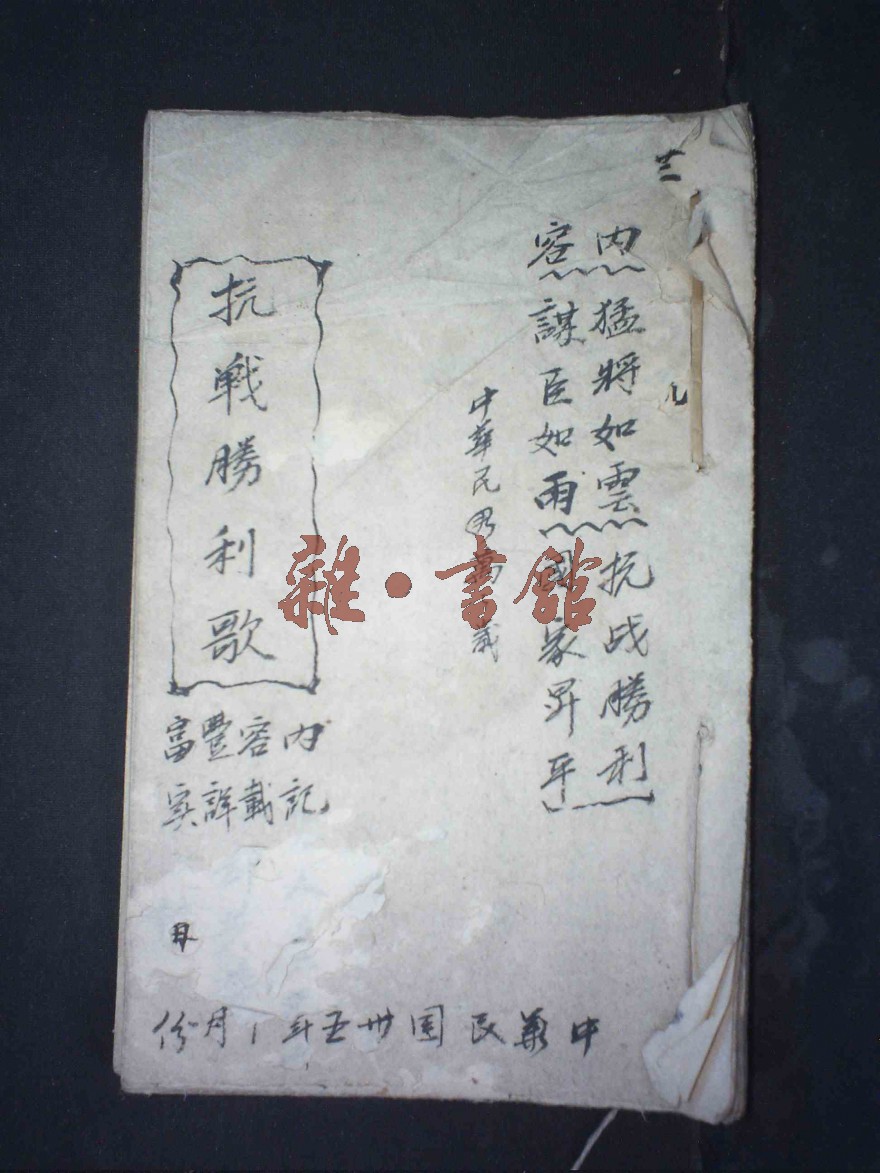 三
九
内猛將如雲抗战勝利
容謀臣如雨國家昇平
中華民國萬歲
抗戰勝利歌
内容豐富
記載詳實
中華民国卅五年十月份
雜·書館